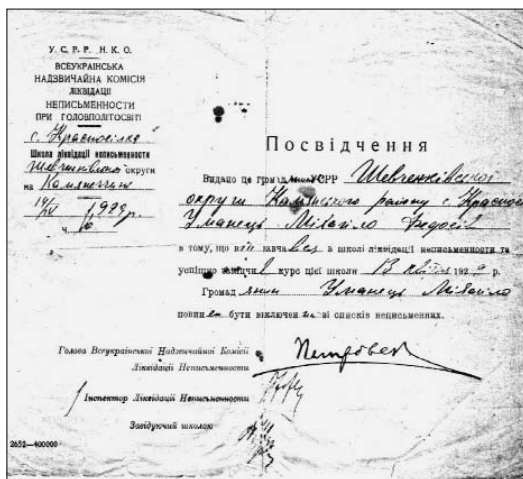 У. С. Р. Р. Н. К. О.
ВСЕУКРАЇНСЬКА
НАДЗВИЧАЙНА КОМІСІЯ
ЛІКВІДАЦІЇ
НЕПИСЬМЕННОСТИ
ПРИ ГОЛОВПОЛІТОСВІТІ
с. Красносілка
Школа ліквідації неписьменности
Шевченківської округи
на Камянеччині
1929 р.
ч.
Посвідчення
Видано це громад УСРР Шевченківської
округи Камянського району с. Красносі
Уманець Міхайло Федосів
в тому, що він навчавсь в школі ліквідації неписьменности та
успішно закінчив курс цієї школи 13 квітня 1929 р.
Громадянин Уманець Міхайло
повинен бути виключений зі списків неписьменних.
Голова Всеукраїнської Надзвичайної Комісії
Ліквідації Неписьменности
Інспектор Ліквідації Неписьменности
Завідуючий школою
2652—400000